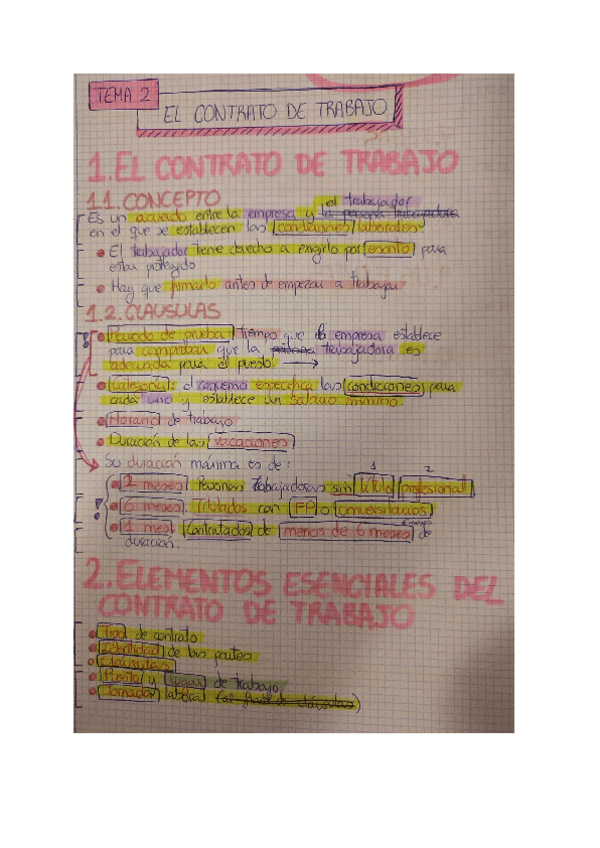 TEMA 2
EL CONTRATO DE TRABAJO
1. EL CONTRATO DE TRABAJO
1.1. CONCEPTO
el trabajador
Es un acuerdo entre la empresa y la persona trabajadora
en el que se establecen las condiciones laborales
El trabajador tiene derecho a exigirlo por escrito para
estar protegido
Hay que firmarlo antes de empezar a trabajar
1.2. CLAUSULAS
Periodo de prueba: Tiempo que la empresa establece
para comprobar que la trabajadora es
adecuada para el puesto
Categoría: el convenio especifica las condiciones para
cada uno y establece un salario mínimo
Horario de trabajo
Duración de las vacaciones
Su duración máxima es de:
1 2
2 meses Personas trabajadoras sin título profesional
6 meses Titulados con FP o universitarios
1 mes Contratados de menos de 6 meses de
duración.
2. ELEMENTOS ESENCIALES DEL
CONTRATO DE TRABAJO
Tipo de contrato
Identidad de las partes
Cláusulas
Puesto y lugar de trabajo
Jornada laboral (al final de cláusulas)